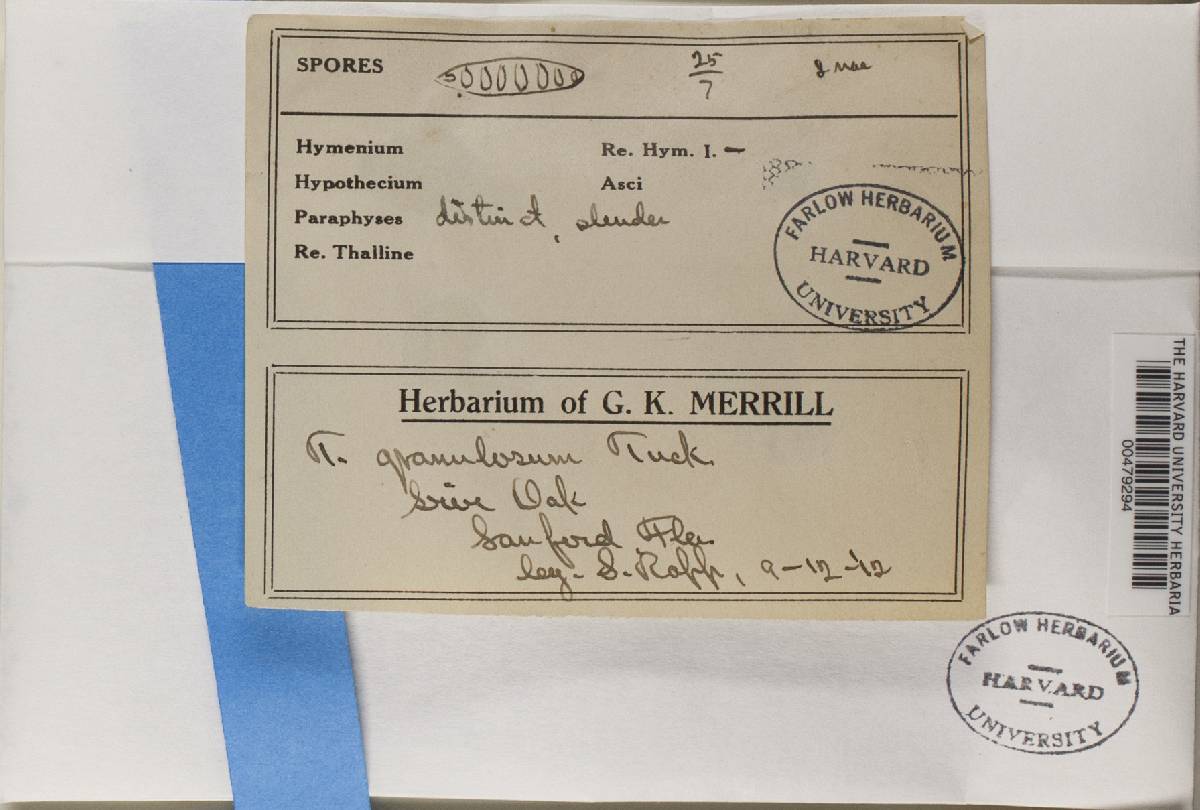 SPORES 25/7
Hymenium Re. Hym. I. –
Hypothecium Asci
Paraphyses distinct, slender
Re. Thalline
FARLOW HERBARIUM
HARVARD
UNIVERSITY
Herbarium of G. K. MERRILL
T. granulosum Tuck.
Live Oak
Sanford Fla.
leg. S. Rapp, 9-12-12
THE HARVARD UNIVERSITY HERBARIA
00479294
FARLOW HERBARIUM
HARVARD
UNIVERSITY